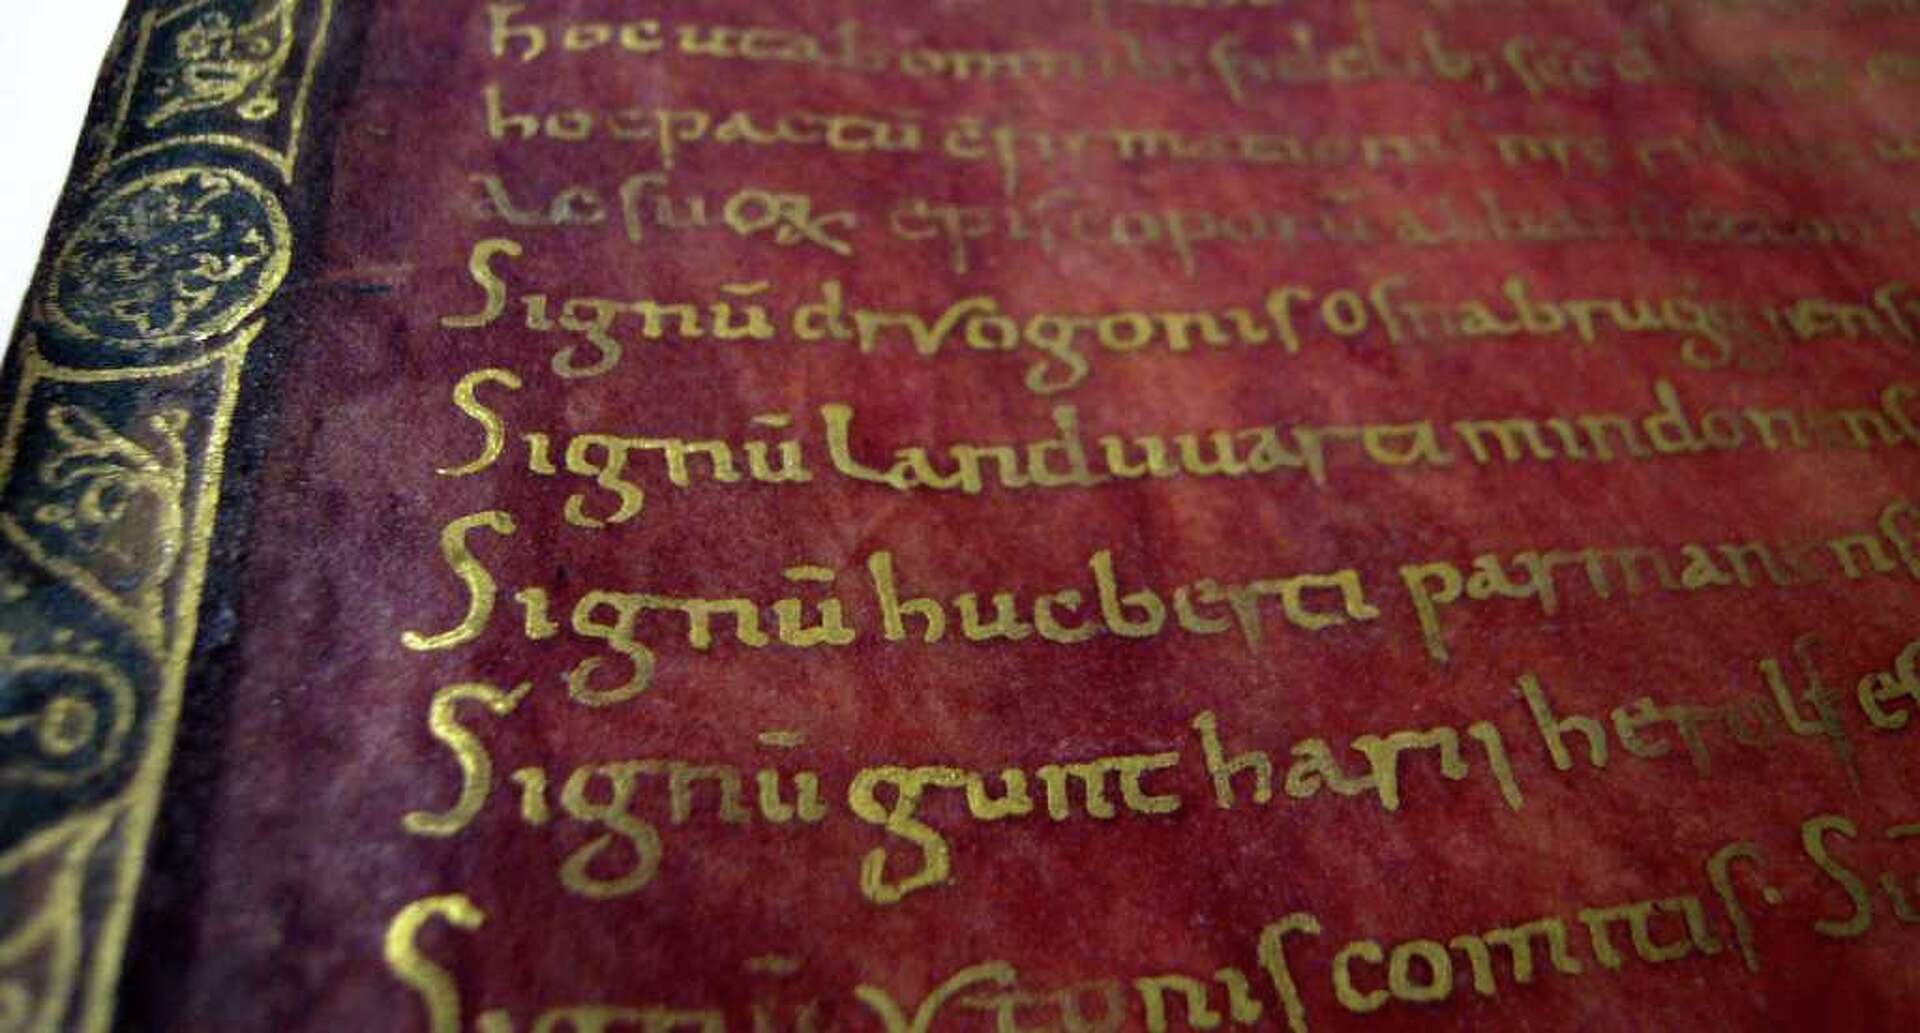 hoc ut ab omnib; fidelib; sc̄e d
hoc pactū c̄firmationis nr̄e
ac suoꝝ & ep̄iscoporū abb
Signū drvogonis osnabruggensis
Signū landuuarti mindonens
Signū hucberti parmanens
Signū gunt harij herolf
Signū ottonis comitis. Sig